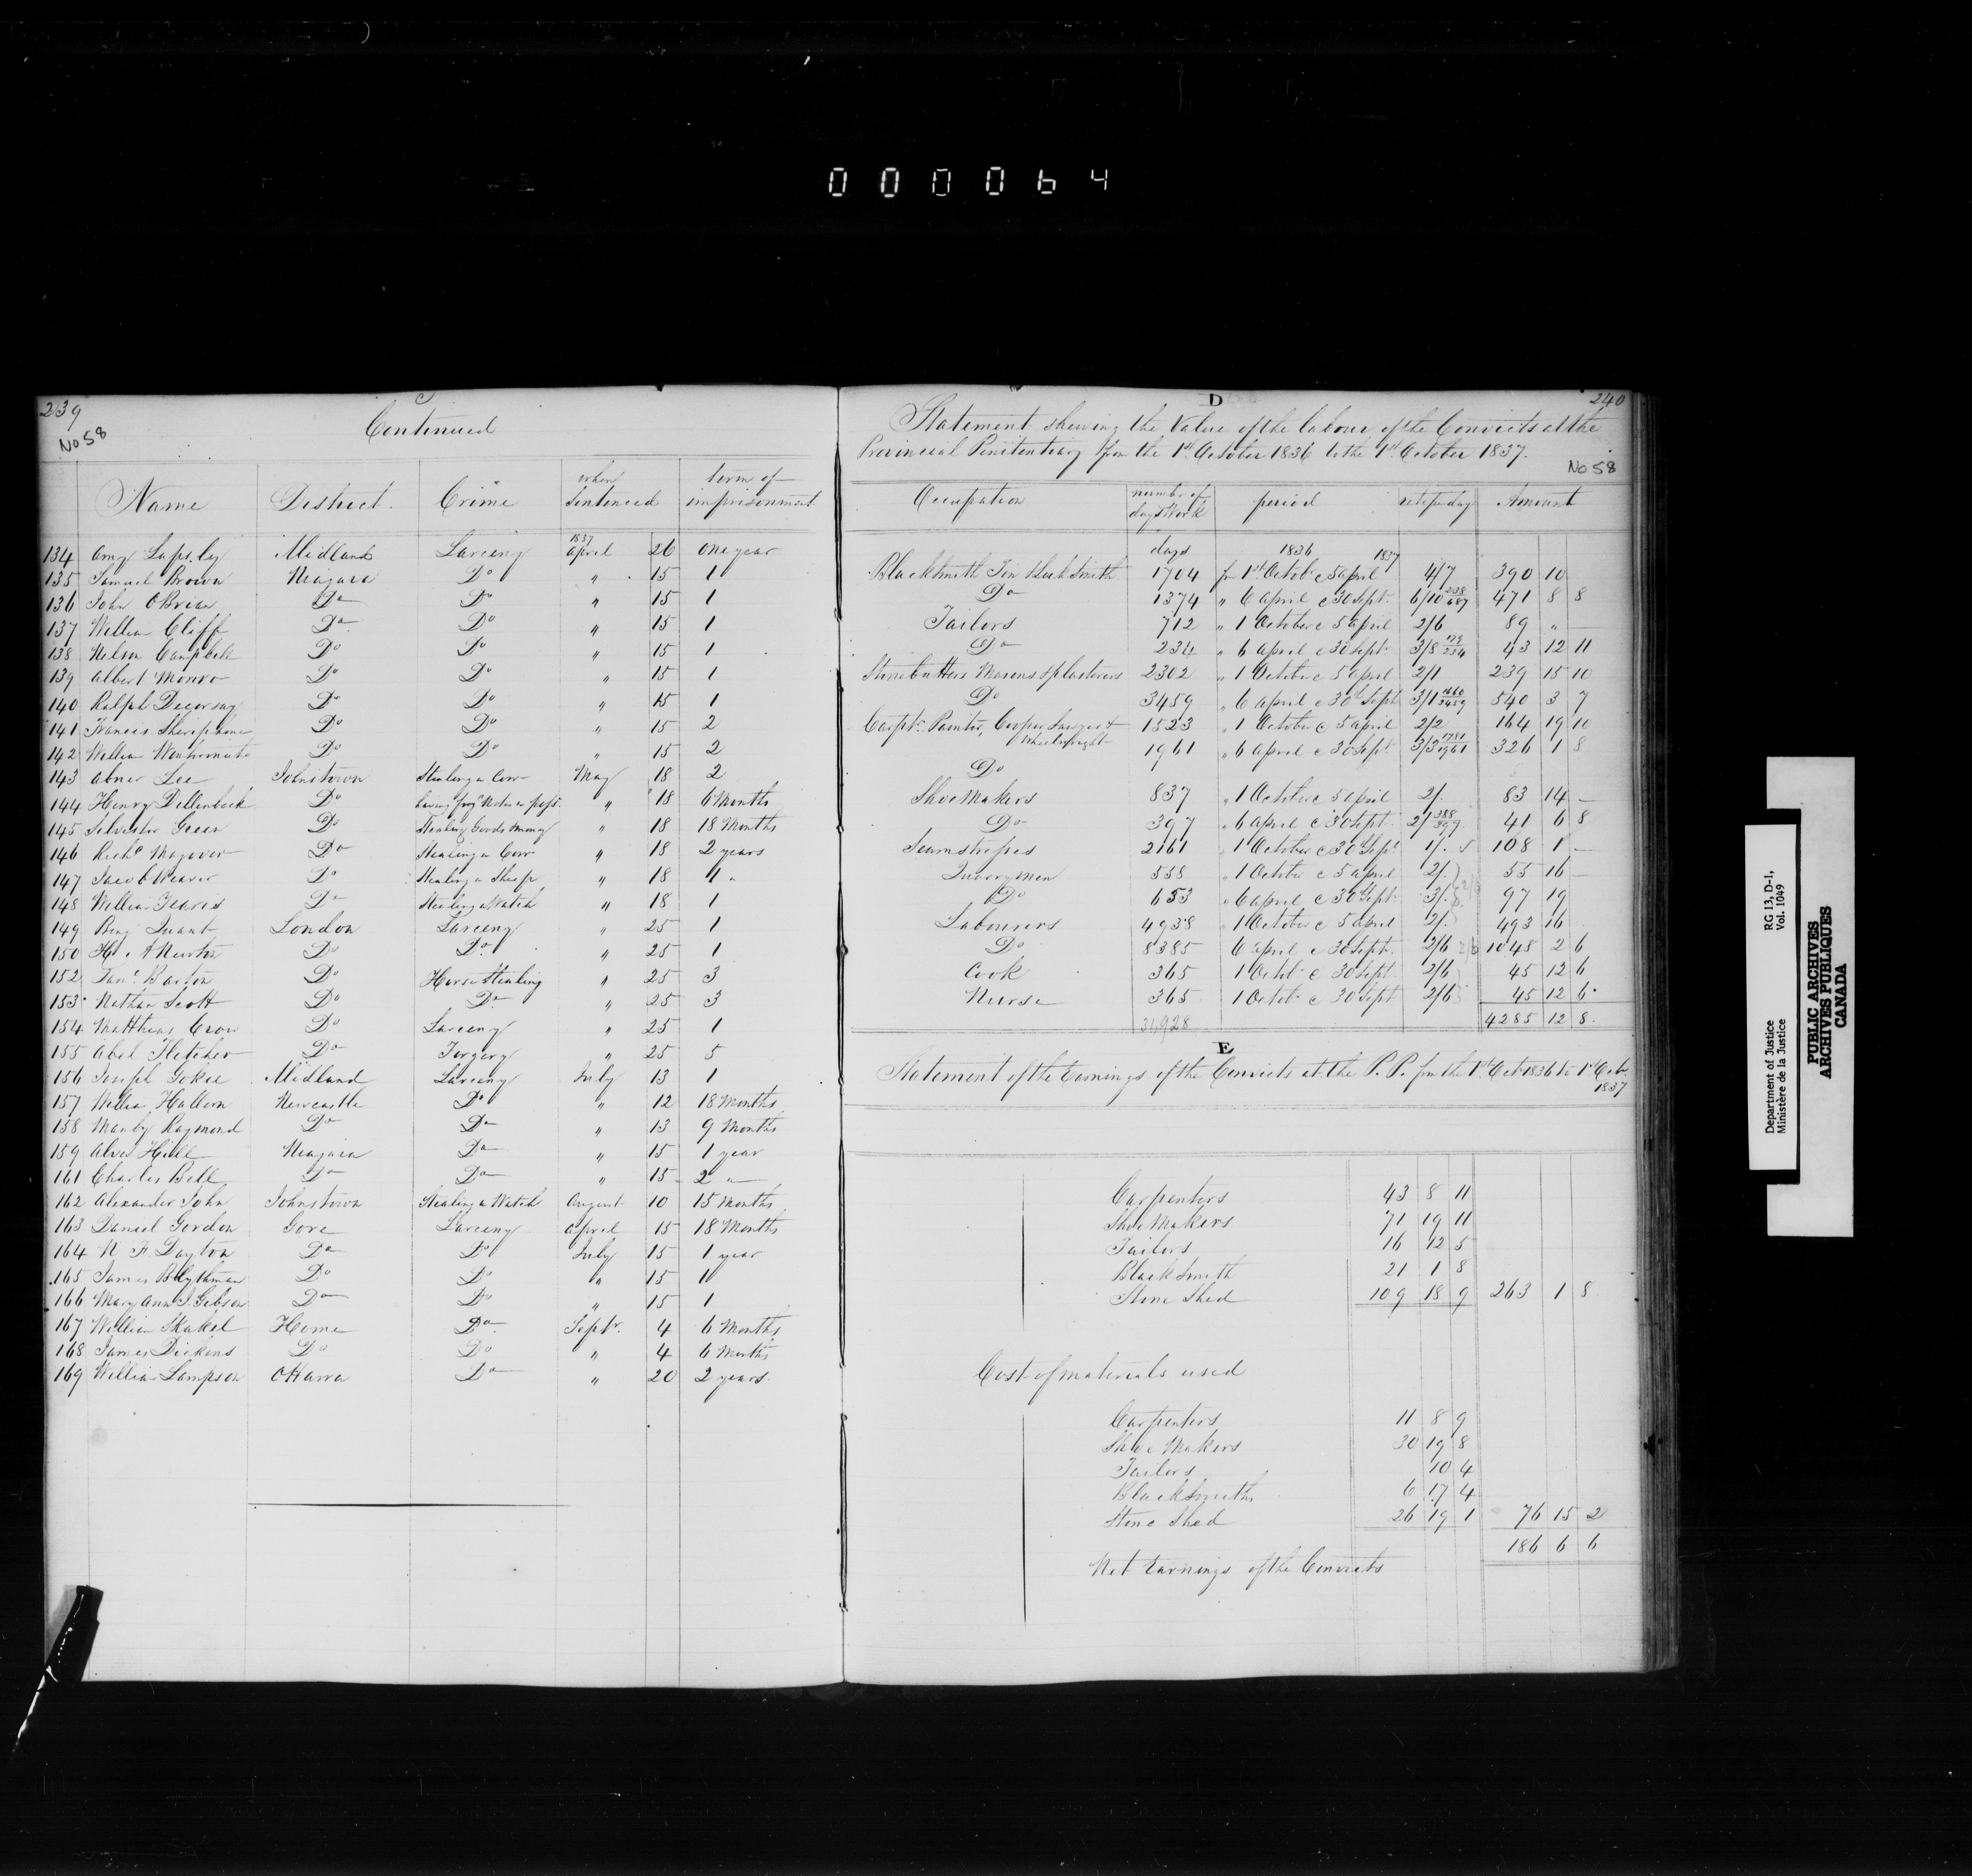 000064
239
No 58
C
Continued
Name District Crime when Sentenced term of imprisonment
134 Amy Lapsley Midland Larceny 1837 April 26 one year
135 Samuel Brown Niagara Do " 15 1
136 John OBrian Do Do " 15 1
137 William Cliff Do Do " 15 1
138 Nelson Campbell Do Do " 15 1
139 Albert Monro Do Do " 15 1
140 Ralph Do Do " 15 1
141 Francis Do Do " 15 2
142 William Do Do " 15 2
143 Abner Lee Johnstown Stealing a Cow May 18 2
144 Henry Dellenback Do having forgd Notes in poss. " 18 6 Months
145 Silvester Green Do Stealing Goods & money " 18 18 Months
146 Richd Magover Do Stealing a Cow " 18 2 years
147 Jacob Weaver Do Stealing a Sheep " 18 1 "
148 William Do Stealing a Watch " 18 1
149 Benj Quant London Larceny " 25 1
150 H. A Newton Do Do " 25 1
152 Barton Do Horse Stealing " 25 3
153 Nathan Scott Do Do " 25 3
154 Matthias Crow Do Larceny " 25 1
155 Abel Fletcher Do Forgery " 25 5
156 Joseph Gokee Midland Larceny July 13 1
157 William Hallorn Newcastle Do " 12 18 Months
158 Manby Raymond Do Do " 13 9 Months
159 Alves Hill Niagara Do " 15 1 year
161 Charles Bell Do Do " 15 2 "
162 Alexander John Johnstown Stealing a Watch August 10 15 Months
163 Daniel Gordon Gore Larceny April 15 18 Months
164 N F Dayton Do Do July 15 1 year
165 James Blythman Do Do " 15 1
166 Mary Ann S. Gibson Do Do " 15 1
167 William Skakel Home Do Septr. 4 6 Months
168 James Dickens Do Do " 4 6 Months
169 William Lampson Ottawa Do " 20 2 years
D
240
Statement shewing the Value of the labour of the Convicts at the
Provincial Penitentiary from the 1st October 1836 to the 1st October 1837.
No 58
Occupation number of days Work period rate per day Amount
days 1836 1837
Blacksmith Tin & Lock Smith 1704 fm 1st Octob. c 5 April 4/7 390 10
Do 1374 " 6 April c 30 Sept. 6/10 471 8 8
Tailors 712 " 1 October c 5 April 2/6 89 " —
Do 234 " 6 April c 30 Sept. 3/8 179/234 43 12 11
Stonecutters Masons & plasterers 2302 " 1 October c 5 April 2/1 239 15 10
Do 3459 " 6 April c 30th Sept 3/1 1660/3459 540 3 7
Carptr. Painter, Cooper Sawyer & Wheelwright 1523 " 1 October c 5 April 2/2 164 19 10
Do 1961 " 6 April c 30 Sept. 3/3 1781/1961 326 1 8
Shoe Makers 837 " 1 October c 5 April 2/. 83 14 —
Do 397 " 6 April c 30 Sept. 2/1 388/397 41 6 8
Seamstresses 2161 1 October c 30 Sept. 1/. 108 1 —
Quarrymen 558 " 1 October c 5 April 2/. 55 16 —
Do 653 " 6 April c 30 Sept. 3/. 97 19
Labourers 4938 1 October c 5 April 2/. 493 16
Do 8385 6 April c 30 Sept. 2/6 1048 2 6
Cook 365 1 Octob. c 30 Sept 2/6 45 12 6
Nurse 365 1 Octob. c 30 Sept 2/6 45 12 6
31,928 4285 12 8
E
Statement of the Earnings of the Convicts at the P. P. from the 1st Oct 1836 to 1st Octr.
1837
Carpenters 43 8 11
Shoe Makers 71 19 11
Tailors 16 12 5
Black Smith 21 1 8
Stone Shed 109 18 9 263 1 8
Cost of materials used
Carpenters 11 8 9
Shoe Makers 30 19 8
Tailors 10 4
Blacksmiths 6 17 4
Stone Shed 26 19 1 76 15 2
186 6 6
Net Earnings of the Convicts
Department of Justice RG 13, D-1,
Ministère de la Justice Vol. 1049
PUBLIC ARCHIVES
ARCHIVES PUBLIQUES
CANADA